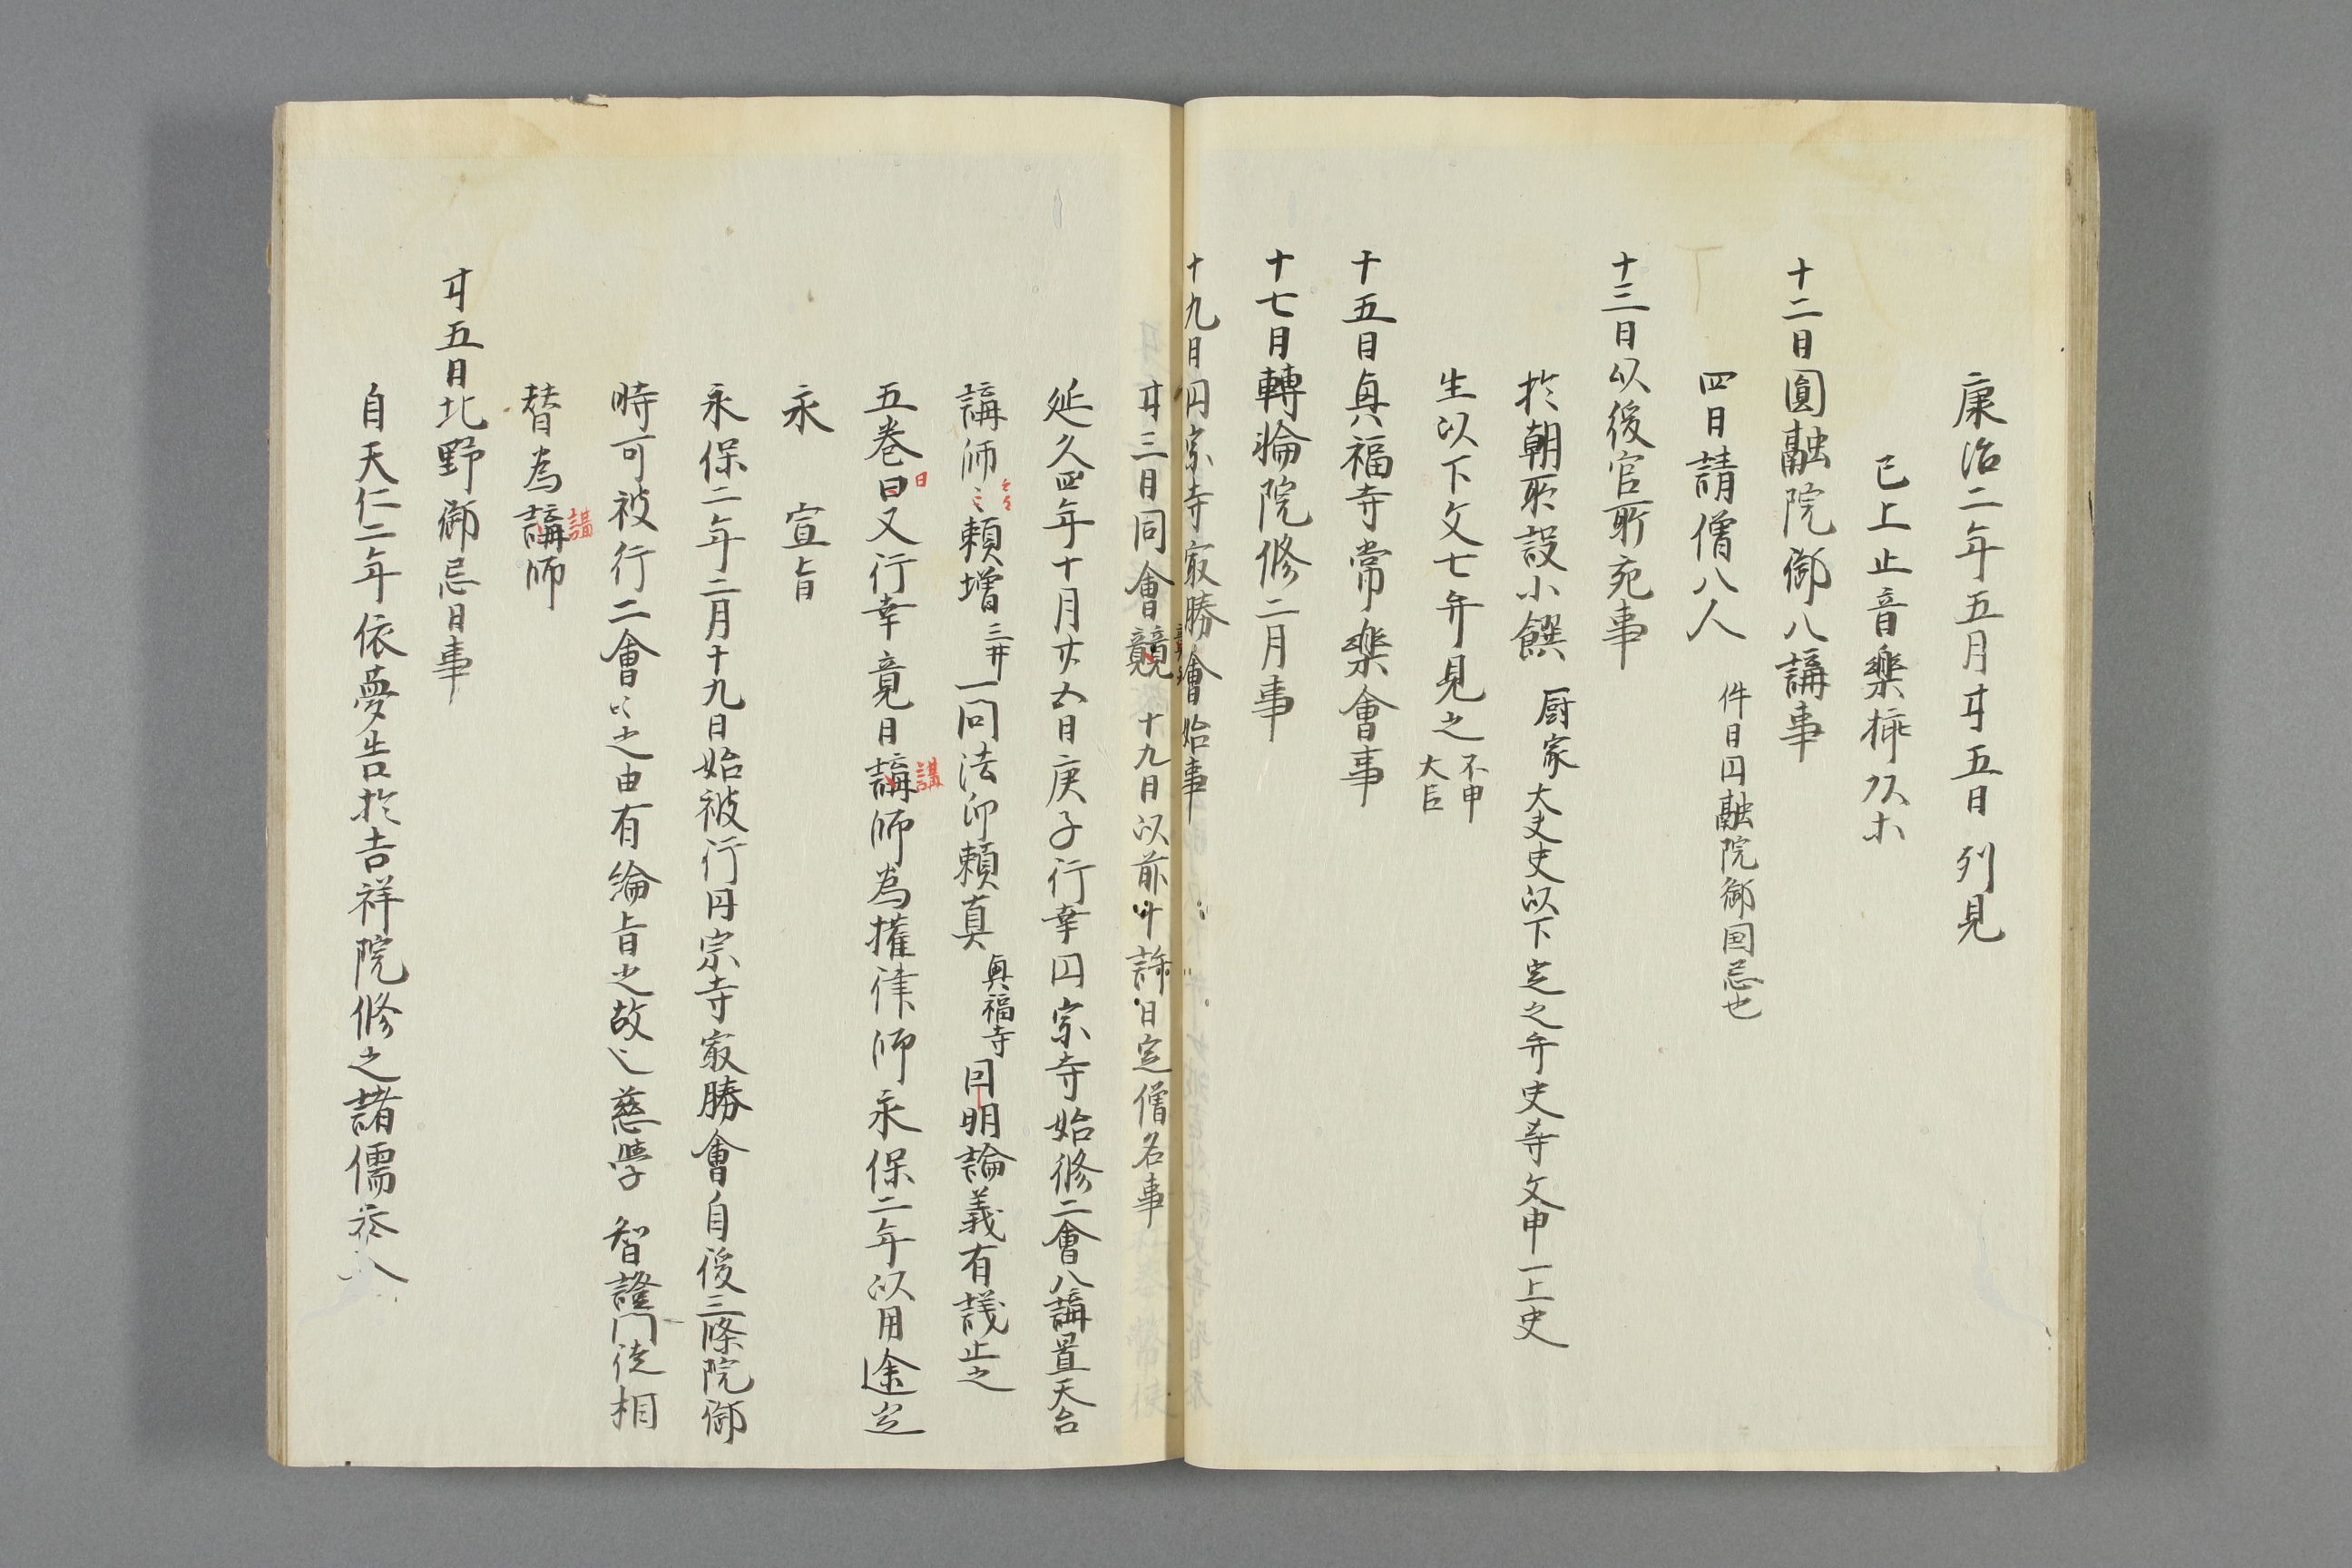 康治二年五月廿五日列見
已上止音樂挿
十二日圓融院御八講事
四日請僧八人 件日円融院御国忌也
十三日以後官所宛事
於朝所設小饌 厨家大夫史以下定之弁史等文申一上史
生以下文七弁見之 不申大臣
十五日真福寺常樂會事
十七日轉輪院修二月事
十九日円宗寺㝡勝會始事
廿三日同會竟 十九日以前日定僧名事
延久四年十月廿五日庚子行幸円宗寺始修二會八講置天台
講師々頼增三井一問法印頼真真福寺同明論義有議止之
五巻日又行幸竟日講師為權律師永保二年以用途定
永 宣旨
永保二年二月十九日始被行円宗寺㝡勝會自後三條院御
時可被行二會々之由有綸旨之故也慈學智證門徒相
替為講師
廿五日北野御忌日事
自天仁二年依夢告於吉祥院修之諸儒参入